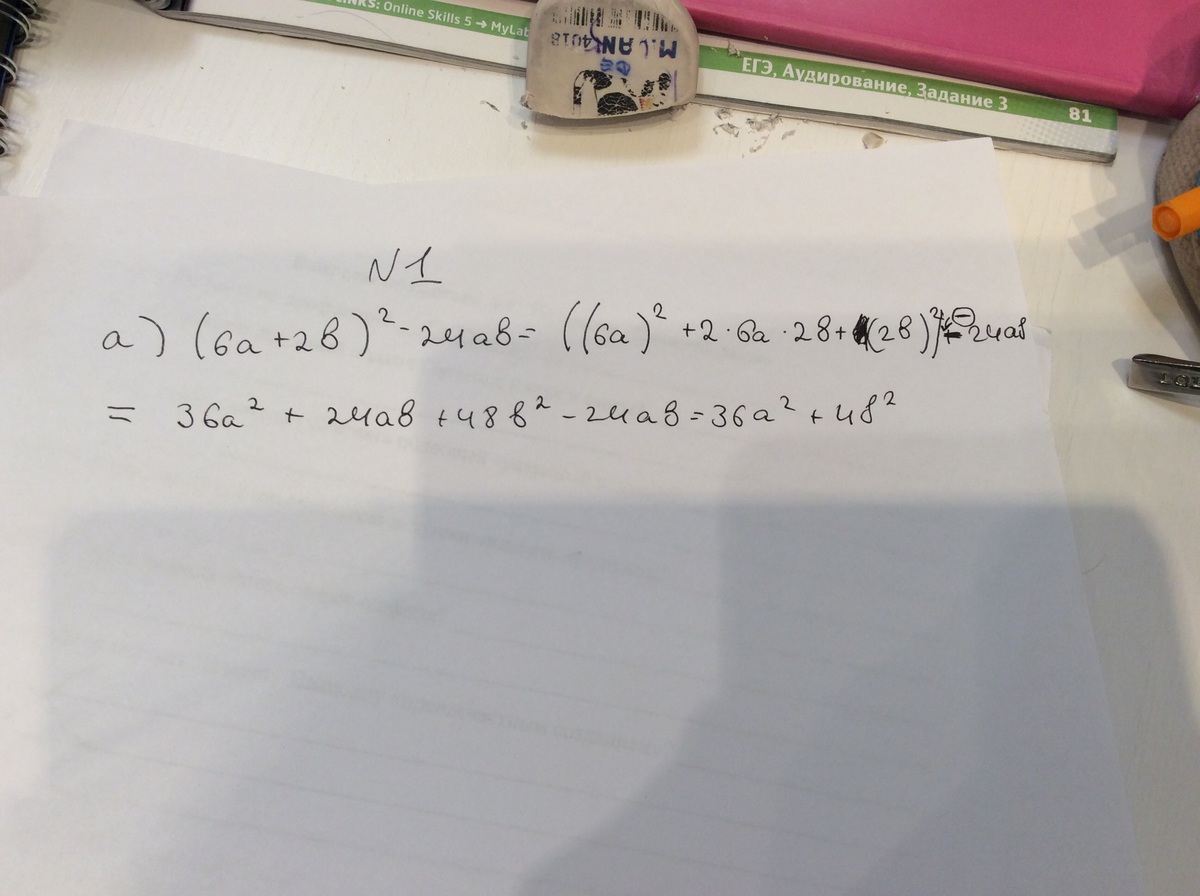 LINKS: Online Skills 5 → MyLab
M.LAN 4018
ЕГЭ, Аудирование, Задание 3 81
N1
а) (6а+2в)² - 24ав = ((6а)² + 2·6а·2в + (2в)²) - 24ав
= 36а² + 24ав + 48в² - 24ав = 36а² + 48²